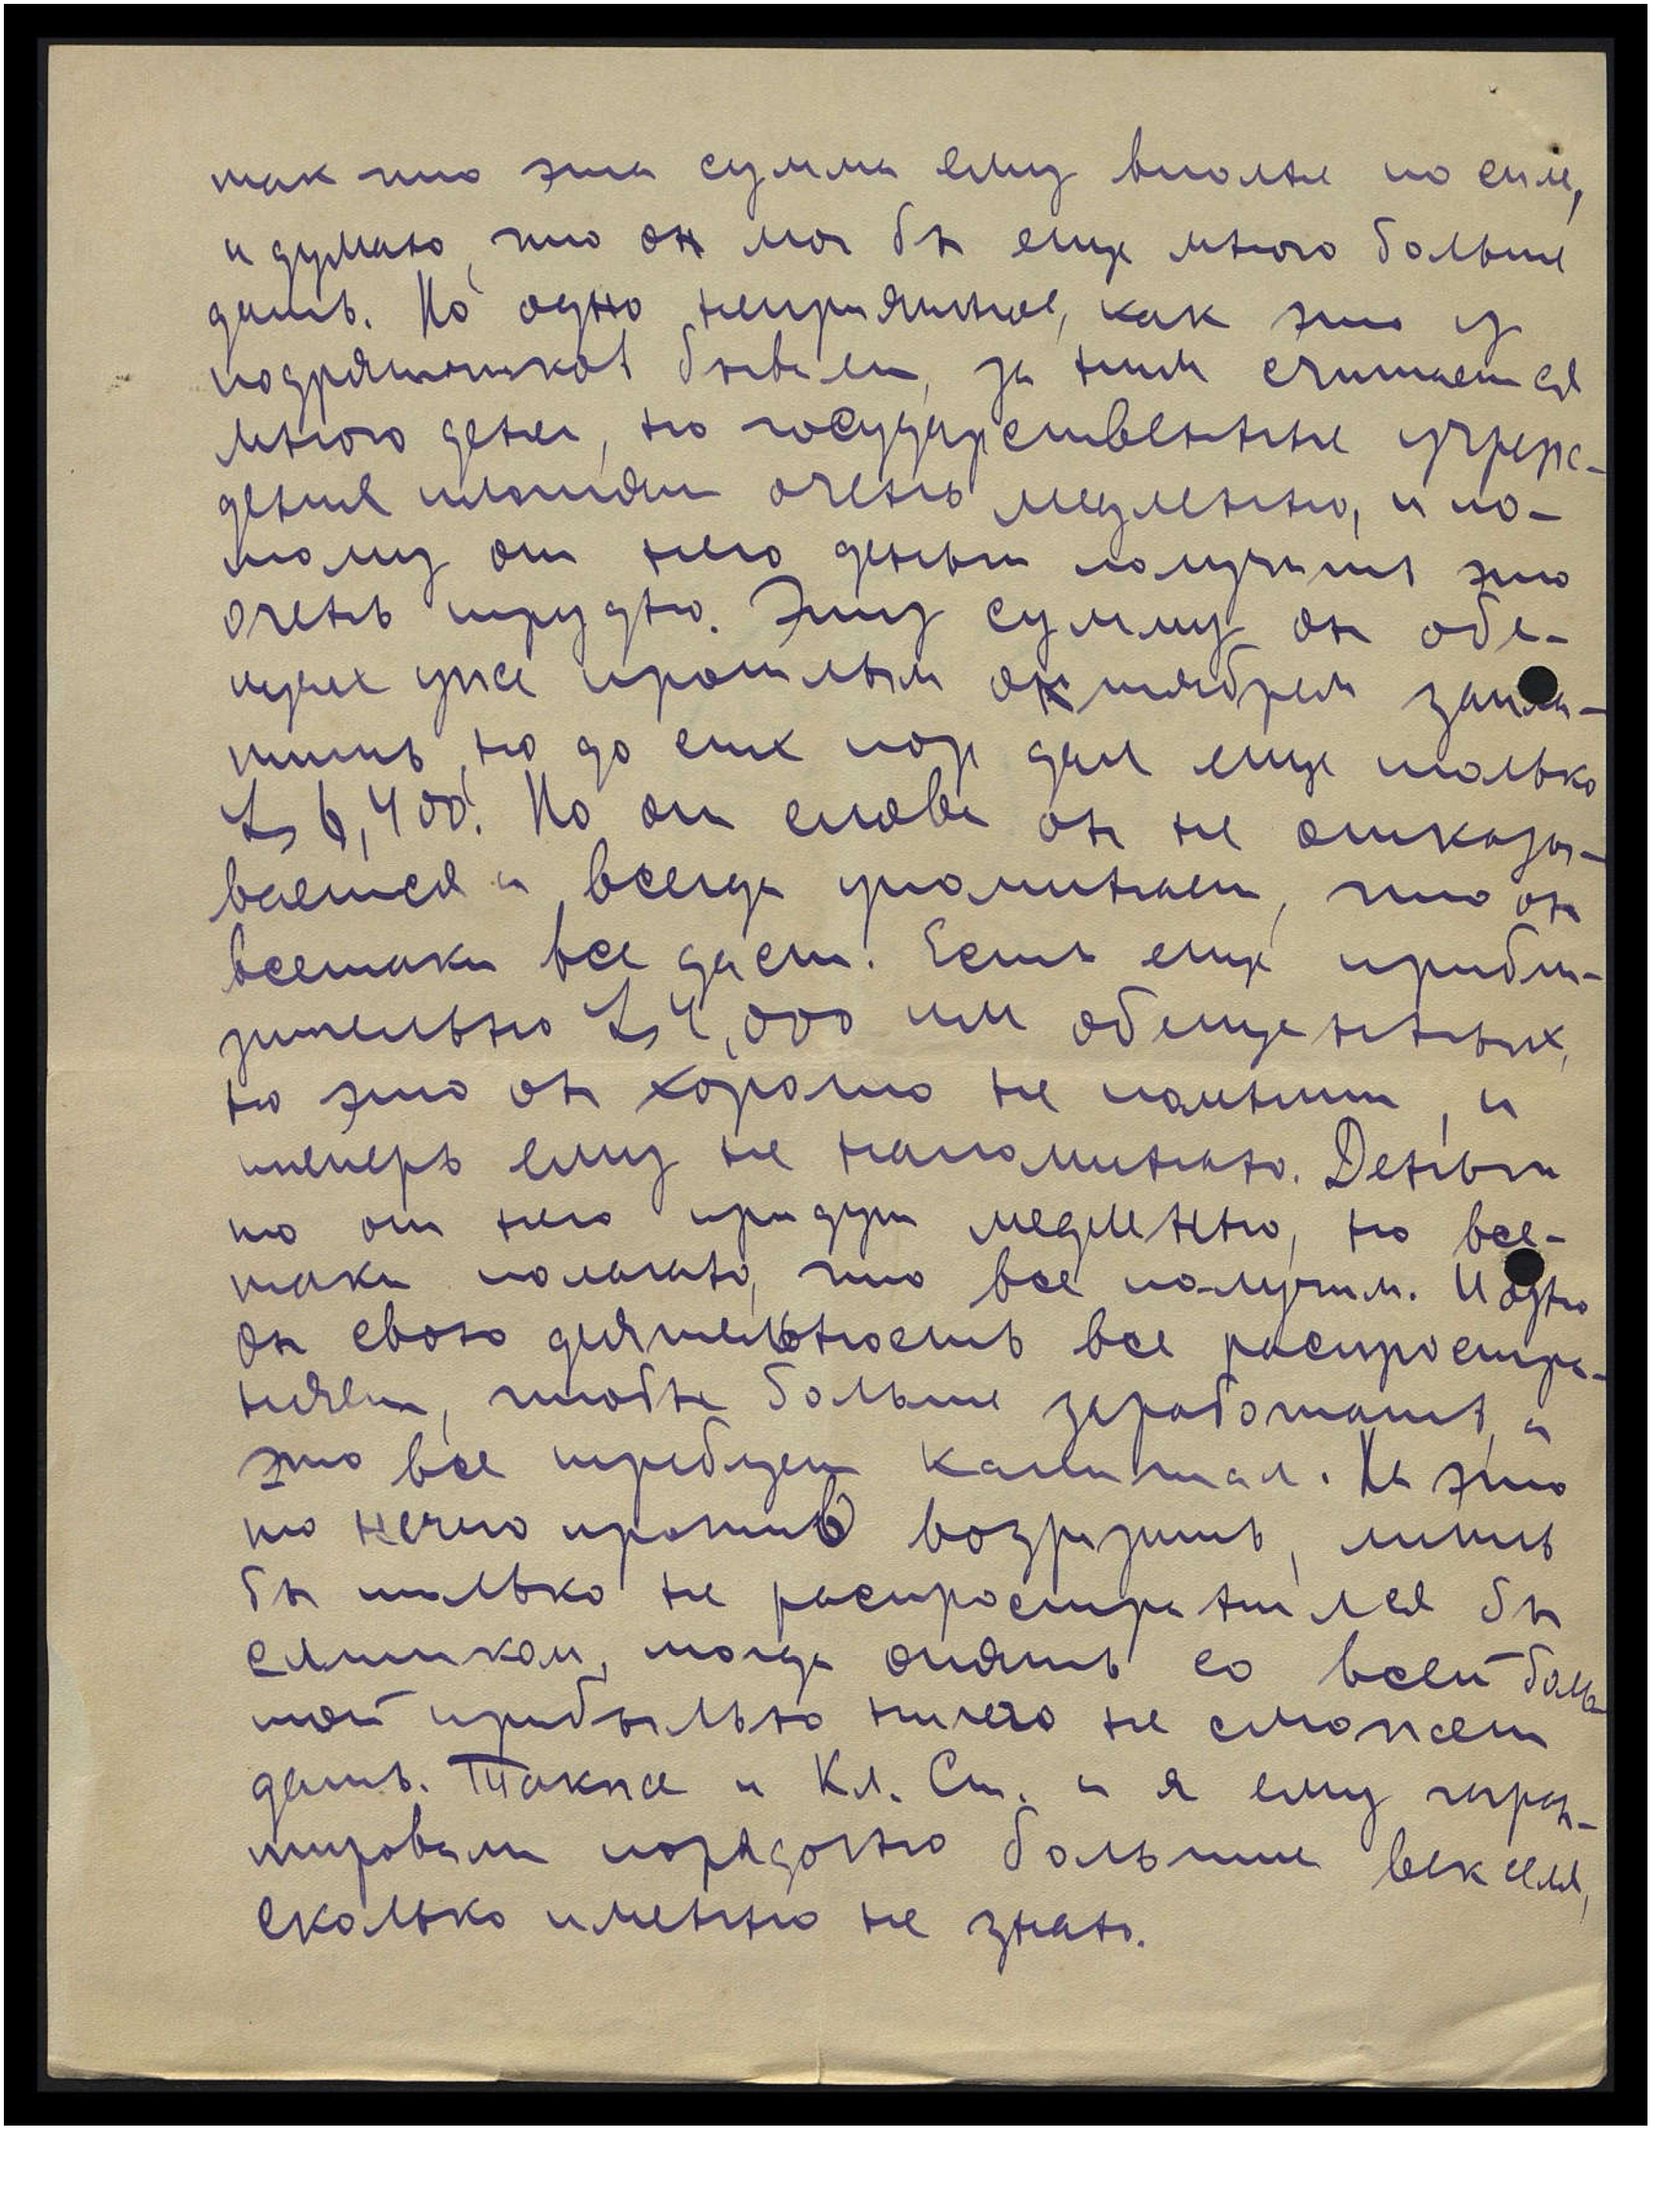 так что эта сумма ему вполне по силе,
и думаю, что он мог бы еще много больше
дать. Но одно неприятное, как это у
подрятчиков бывает, за ним считается
много денег, но государственные учреж-
дения платят очень медленно, и по-
тому от него деньги получить это
очень трудно. Эту сумму он обе-
щал уже прошлым октябрем запла-
тить, но до сих пор дал еще только
Ls 6,400. Но от слова он не отказы-
вается и всегда упоминает, что он
всетаки все даст. Есть еще прибли-
зительно Ls 4,000 им обещенных,
но это он хорошо не помнит, и
теперь ему не напоминаю. Деньги
то от него придут медленно, но все-
таки полагаю, что все получим. И одно
он свою деятельность все распростра-
няет, чтобы больше заработать, а
это все требует капитал. На это
то нечего против возразить, лишь
бы только не распространился бы
слишком, тогда опять со всей боль-
шой прибылью ничего не сможет
дать. Также и Кл. Ст. и я ему гаран-
тировали порядочно большие векселя,
сколько именно не знаю.